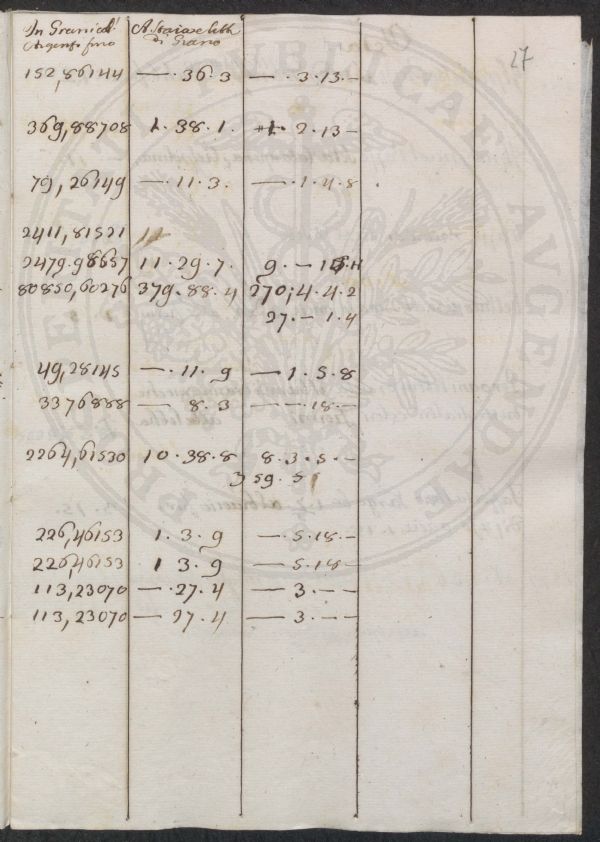 27
In Grani di A Staia e lib
Argento fino di Grano
152,86144 — . 36 . 3 — . 3 . 13 . –
369,88708 1 . 38 . 1 . 1 . 2 . 13 –
79,26149 — . 11 . 3 . — . 1 . 4 . 8
2411,81521 11
2479.98657 11 . 29 . 7 . 9 . –
80850,60276 379 . 88 . 4 270; 4 . 4 . 2
27 . – 1 . 4
49,28145 — . 11 . 9 — 1 . 5 . 8
3376888 — . 8 . 3 — . 18 . –
2264,61530 10 . 38 . 8 8 . 3 . 5 . –
359 . 5
226,46153 1 . 3 . 9 — . 5 . 18 . –
226,46153 1 3 . 9 — . 5 . 18 –
113,23070 — . 27 . 4 — 3 . – –
113,23070 — . 27 . 4 — 3 . – –
PUBLICAE AUGENDAE